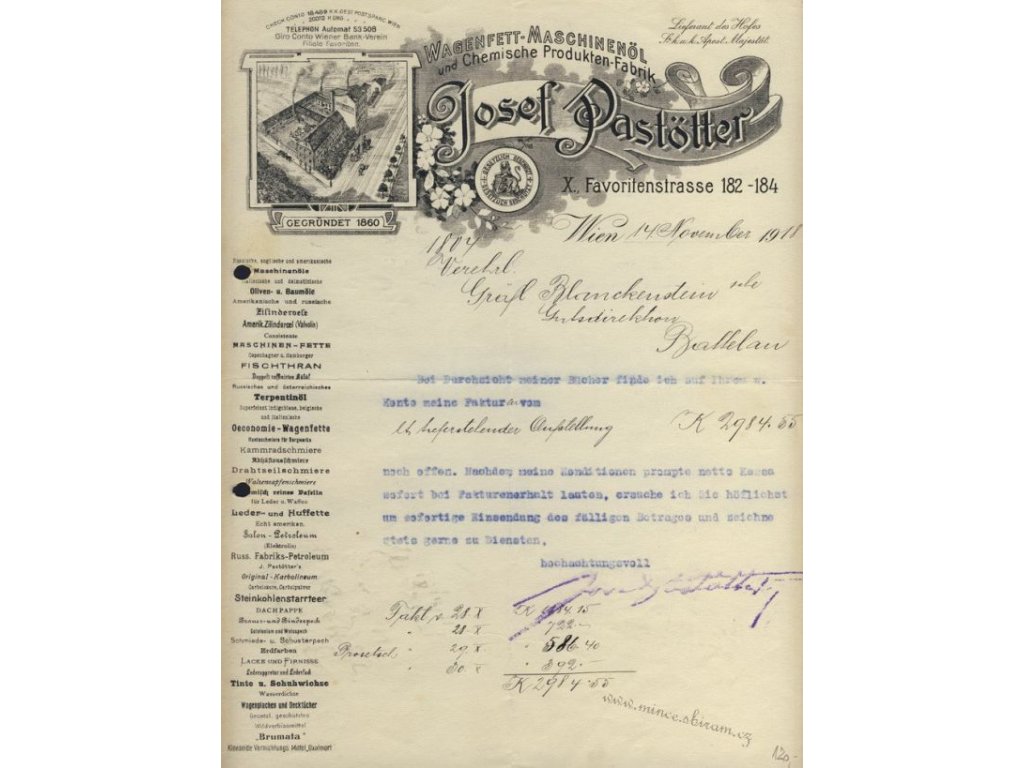 CHECK CONTO 18.489 K.K. OEST. POSTSPARC. WIEN
TELEPHON Automat 53508
Giro Conto Wiener Bank-Verein
Filiale Favoriten.
WAGENFETT-MASCHINENÖL
und Chemische Produkten-Fabrik
Lieferant des Hofes
Sr. k. u. k. Apost. Majestät.
Josef Pastötter
X., Favoritenstrasse 182-184
GEGRÜNDET 1860
Wien 14 November 1918
1804
Verehrl.
Gräfl Blanckenstein sche
Gutsdirektion
Battelau
Russische, englische und amerikanische
Maschinenöle
Italienische und dalmatinische
Oliven- u. Baumöle
Amerikanische und russische
Zilinderoele
Amerik. Zilinderoel (Valvolin)
Consistente
MASCHINEN-FETTE
Copenhagner u. Hamburger
FISCHTHRAN
Doppelt raffiniertes Rüböl
Russisches und österreichisches
Terpentinöl
Superfeinst indigoblaue, belgische
und italienische
Oeconomie-Wagenfette
Kammradschmiere
Drahtseilschmiere
Walzenzapfenschmiere
chemisch reines Vaselin
für Leder u. Waffen
Leder- und Huffette
Echt amerikan.
Salon-Petroleum
(Elektrolin)
Russ. Fabriks-Petroleum
J. Pastötter's
Original-Karbolineum
Steinkohlenstarrteer
DACHPAPPE
Brauer- und Binderpech
Schmiede- u. Schusterpech
Erdfarben
LACKE UND FIRNISSE
Tinte u. Schuhwichse
Wasserdichte
Wagenplachen und Decktücher
Gesetzl. geschütztes
Wildverbissmittel
„Brumata"
Bei Durchsicht meiner Bücher finde ich auf Ihrem w.
Konto meine Fakturen vom
lt. tieferstehender Aufstellung K 2984.55
noch offen. Nachdem meine Konditionen prompte netto Kassa
sofort bei Fakturenerhalt lauten, ersuche ich Sie höflichst
um sofortige Einsendung des fälligen Betrages und zeichne
stets gerne zu Diensten,
hochachtungsvoll
Josef Pastötter
28 X K
28 X " 722.-
" 29 X " 586.40
" 30 X " 392.-
K 2984.55
www.mince.sbiram.cz
120,-